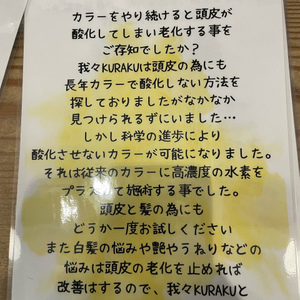 カラーをやり続けると頭皮が
酸化してしまい老化する事を
ご存知でしたか？
我々KURAKUは頭皮の為にも
長年カラーで酸化しない方法を
探しておりましたがなかなか
見つけられるずにいました…
しかし科学の進歩により
酸化させないカラーが可能になりました。
それは従来のカラーに高濃度の水素を
プラスして施術する事でした。
頭皮と髪の為にも
どうか一度お試しください
また白髪の悩みや艶やうねりなどの
悩みは頭皮の老化を止めれば
改善はするので、我々KURAKUと